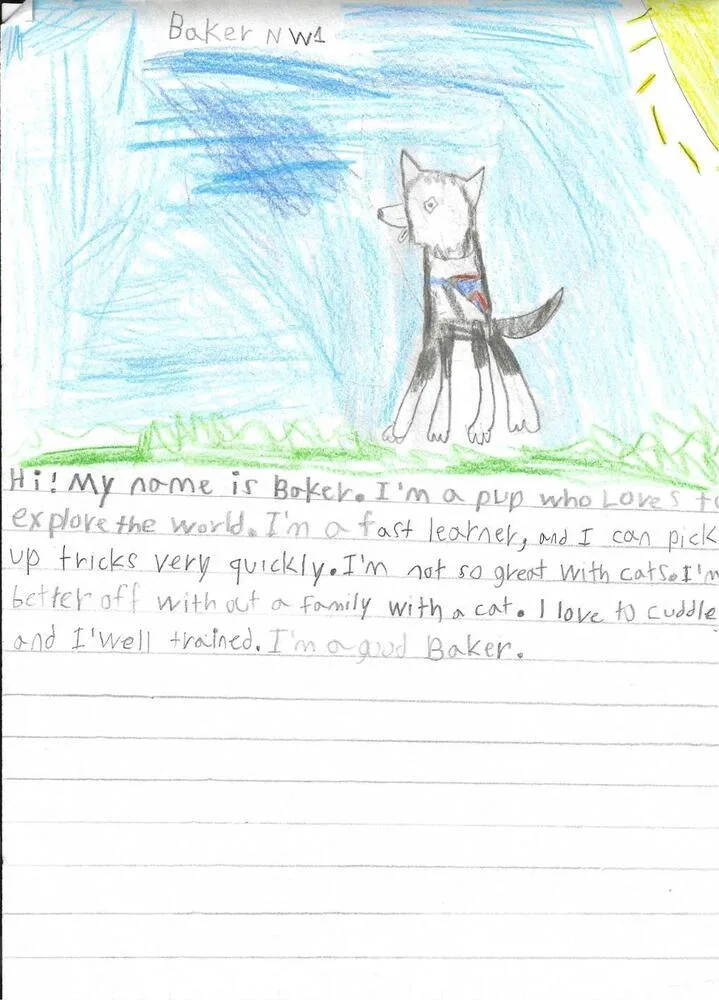 Baker NW1
Hi! My name is Baker. I'm a pup who Loves to
explore the world. I'm a fast learner, and I can pick
up tricks very quickly. I'm not so great with cats. I'm
better off with out a family with a cat. I love to cuddle
and I'well trained. I'm a good Baker.